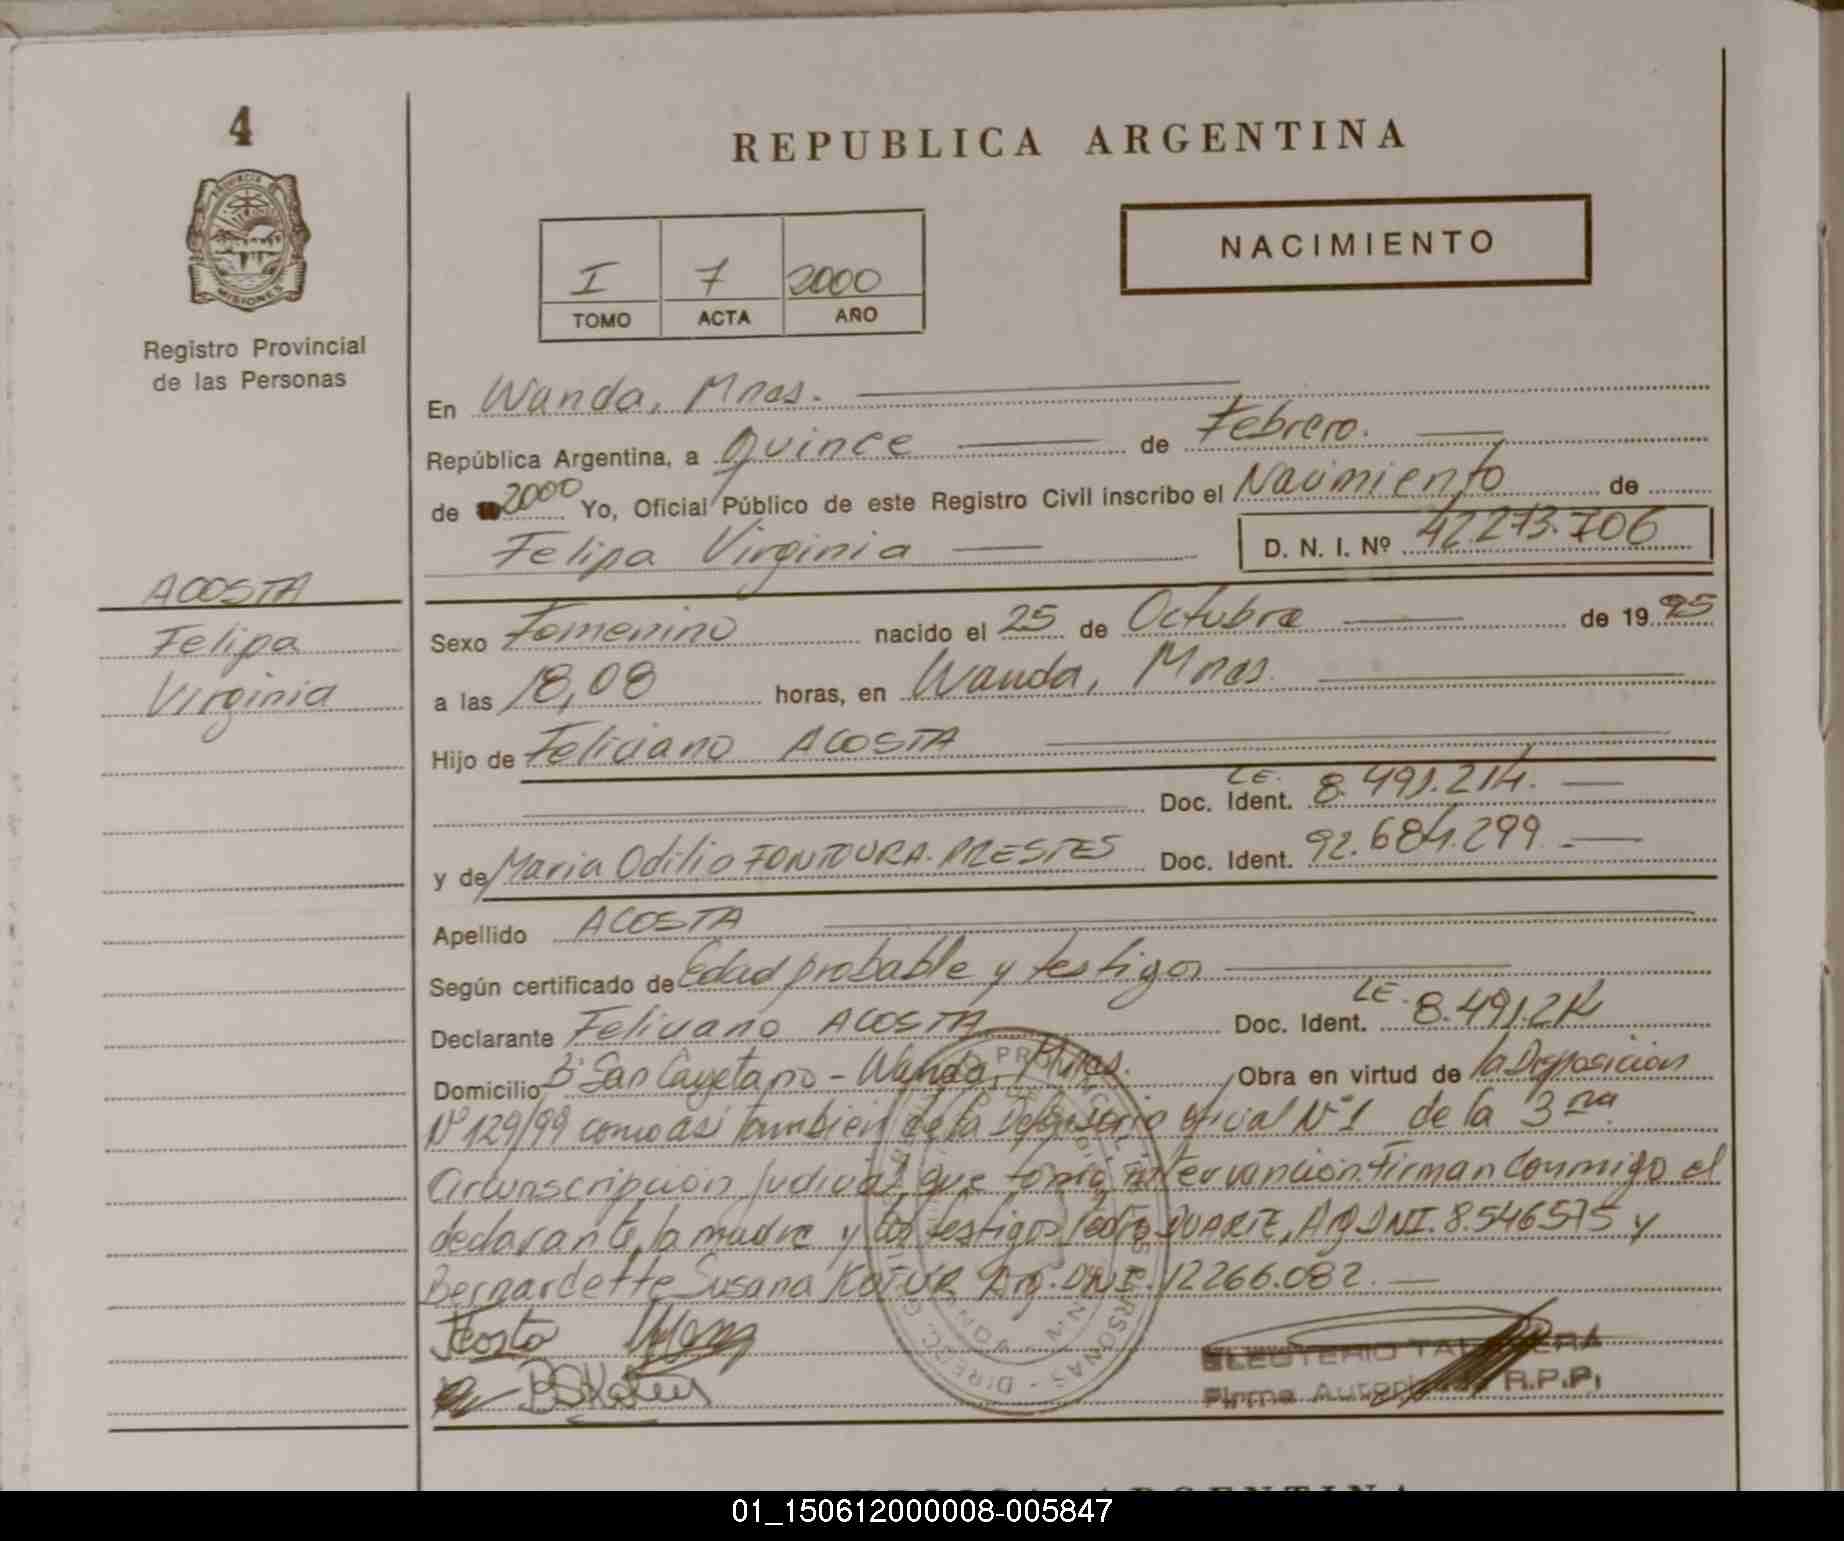 4
REPUBLICA ARGENTINA
PROVINCIA DE
MISIONES
Registro Provincial
de las Personas
I 7 2000
TOMO ACTA AÑO
NACIMIENTO
En Wanda, Mnes.
República Argentina, a Quince de Febrero.
de 2000 Yo, Oficial Público de este Registro Civil inscribo el Nacimiento de
Felipa Virginia D. N. I. Nº 42.273.706
ACOSTA
Felipa
Virginia
Sexo Femenino nacido el 25 de Octubre de 1995
a las 18,08 horas, en Wanda, Mnes.
Hijo de Feliciano ACOSTA
LE. Doc. Ident. 8.491.214.
y de Maria Odilia FONTOURA. PRESTES Doc. Ident. 92.684.299.
Apellido ACOSTA
Según certificado de Edad probable y testigos
Declarante Feliciano ACOSTA Doc. Ident. LE. 8.491.214
Domicilio Bº San Cayetano - Wanda, Mnes. Obra en virtud de la Disposicion
Nº 129/99 como asi tambien de la Defensoria Oficial Nº 1 de la 3ra
Circunscripcion Judicial que tomo intervencion. Firman Conmigo el
declarante, la madre y los testigos Pedro DUARTE, Arg. DNI. 8.546575 y
Bernardette Susana KOTUR Arg. DNI. 12266.082.
Acosta
ELEUTERIO TALAVERA
Firma Autorizada R.P.P.
REPUBLICA ARGENTINA
01_150612000008-005847